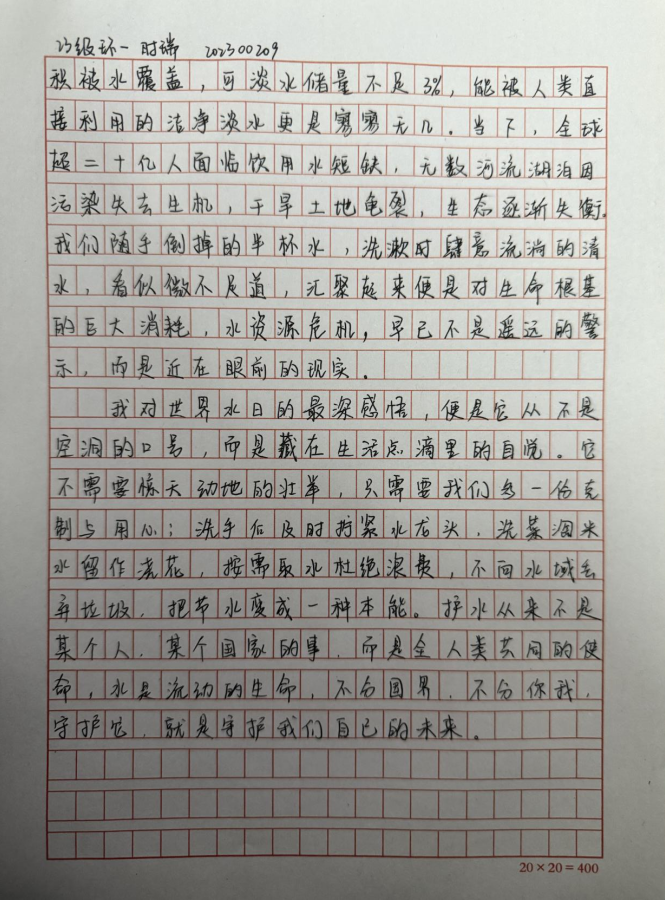 23级环一 时瑞 202300209
积被水覆盖，可淡水储量不足3%，能被人类直
接利用的洁净淡水更是寥寥无几。当下，全球
超二十亿人面临饮用水短缺，无数河流湖泊因
污染失去生机，干旱土地龟裂，生态逐渐失衡。
我们随手倒掉的半杯水，洗漱时肆意流淌的清
水，看似微不足道，汇聚起来便是对生命根基
的巨大消耗，水资源危机，早已不是遥远的警
示，而是近在眼前的现实。
我对世界水日的最深感悟，便是它从不是
空洞的口号，而是藏在生活点滴里的自觉。它
不需要惊天动地的壮举，只需要我们多一份克
制与用心；洗手后及时拧紧水龙头，洗菜淘米
水留作浇花，按需取水杜绝浪费，不向水域丢
弃垃圾，把节水变成一种本能。护水从来不是
某个人、某个国家的事，而是全人类共同的使
命，水是流动的生命，不分国界，不分你我，
守护它，就是守护我们自己的未来。
20×20=400